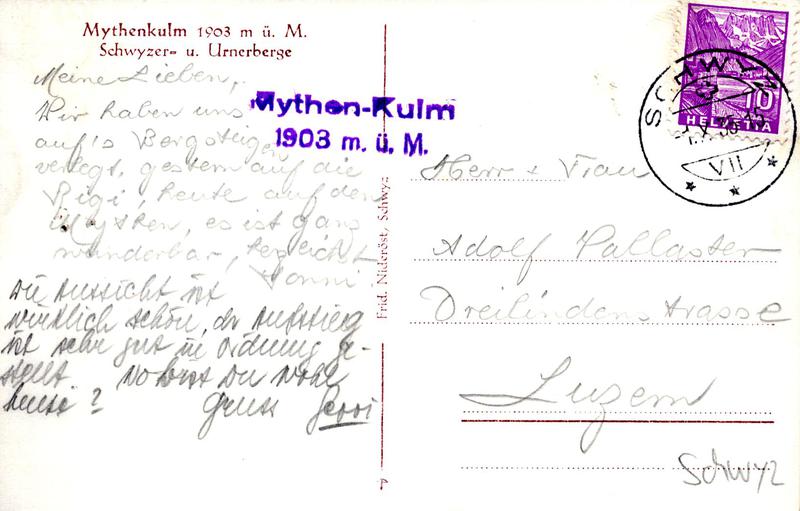 Mythenkulm 1903 m ü. M.
Schwyzer- u. Urnerberge
Meine Lieben,
Wir haben uns
auf's Bergsteigen
verlegt, gestern auf die
Rigi, heute auf den
Mythen, es ist ganz
wunderbar, herzlichst
Vonni
Die Aussicht ist
wirklich schön, der Aufstieg
ist sehr gut in Ordnung ge-
stellt Wo bist Du wohl
heute? Gruss
Mythen-Kulm
1903 m. ü. M.
Frid. Nideröst, Schwyz
SCHWYZ
VII
10
HELVETIA
Herr + Frau
Adolf Pallaster
Dreilindenstrasse
Luzern
Schwyz